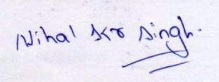 Nihal kr singh.